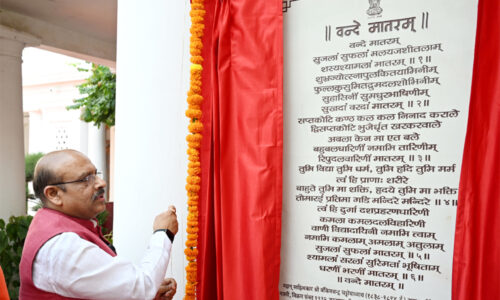 ॥ वन्दे मातरम् ॥
वन्दे मातरम्
सुजलां सुफलां मलयजशीतलाम्
शस्यश्यामलां मातरम् ॥ १॥
शुभ्रज्योत्स्नापुलकितयामिनीम्
फुल्लकुसुमितद्रुमदलशोभिनीम्
सुहासिनीं सुमधुरभाषिणीम्
सुखदां वरदां मातरम् ॥ २॥
सप्तकोटि कण्ठ कल कल निनाद कराले
द्विसप्तकोटि भुजैधृत खरकरवाले
अबला केन मा एत बले
बहुबलधारिणीं नमामि तारिणीम्
रिपुदलवारिणीं मातरम् ॥ ३॥
तुमि विद्या तुमि धर्म, तुमि हृदि तुमि मर्म
त्वं हि प्राणाः शरीरे
बाहुते तुमि मा शक्ति, हृदये तुमि मा भक्ति
तोमारई प्रतिमा गडि मन्दिरे मन्दिरे ॥ ४॥
त्वं हि दुर्गा दशप्रहरणधारिणी
कमला कमलदलविहारिणी
वाणी विद्यादायिनी नमामि त्वाम्
नमामि कमलाम् अमलाम् अतुलाम्
सुजलां सुफलां मातरम् ॥ ५॥
श्यामलां सरलां सुस्मितां भूषिताम्
धरणीं भरणीं मातरम् ॥ ६॥